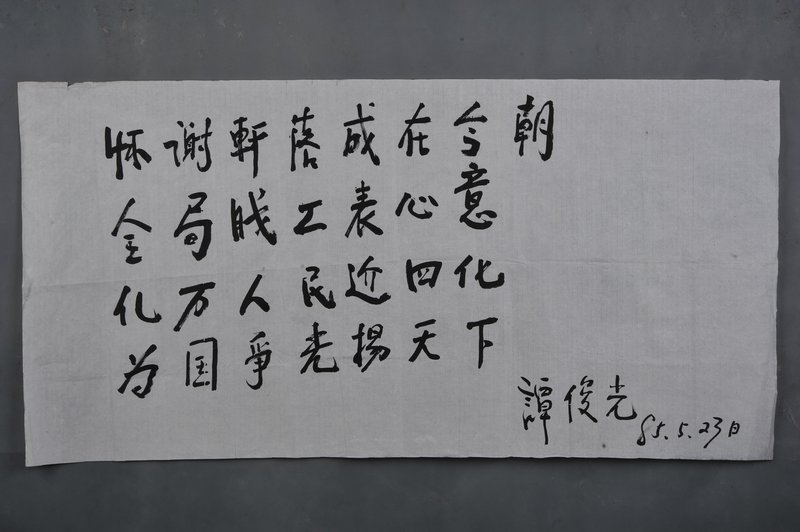 怀谢軒落成在今朝
全局职工表心意
亿万人民迎四化
为国爭光揚天下
譚俊光
85.5.23日